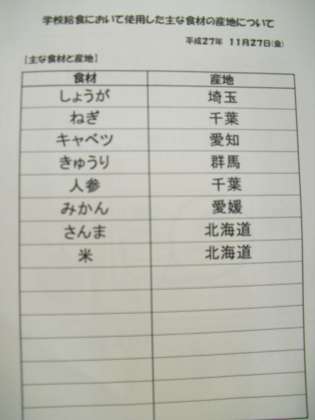 学校給食において使用した主な食材の産地について
平成27年 11月27日(金)
[主な食材と産地]
食材 産地
しょうが 埼玉
ねぎ 千葉
キャベツ 愛知
きゅうり 群馬
人参 千葉
みかん 愛媛
さんま 北海道
米 北海道